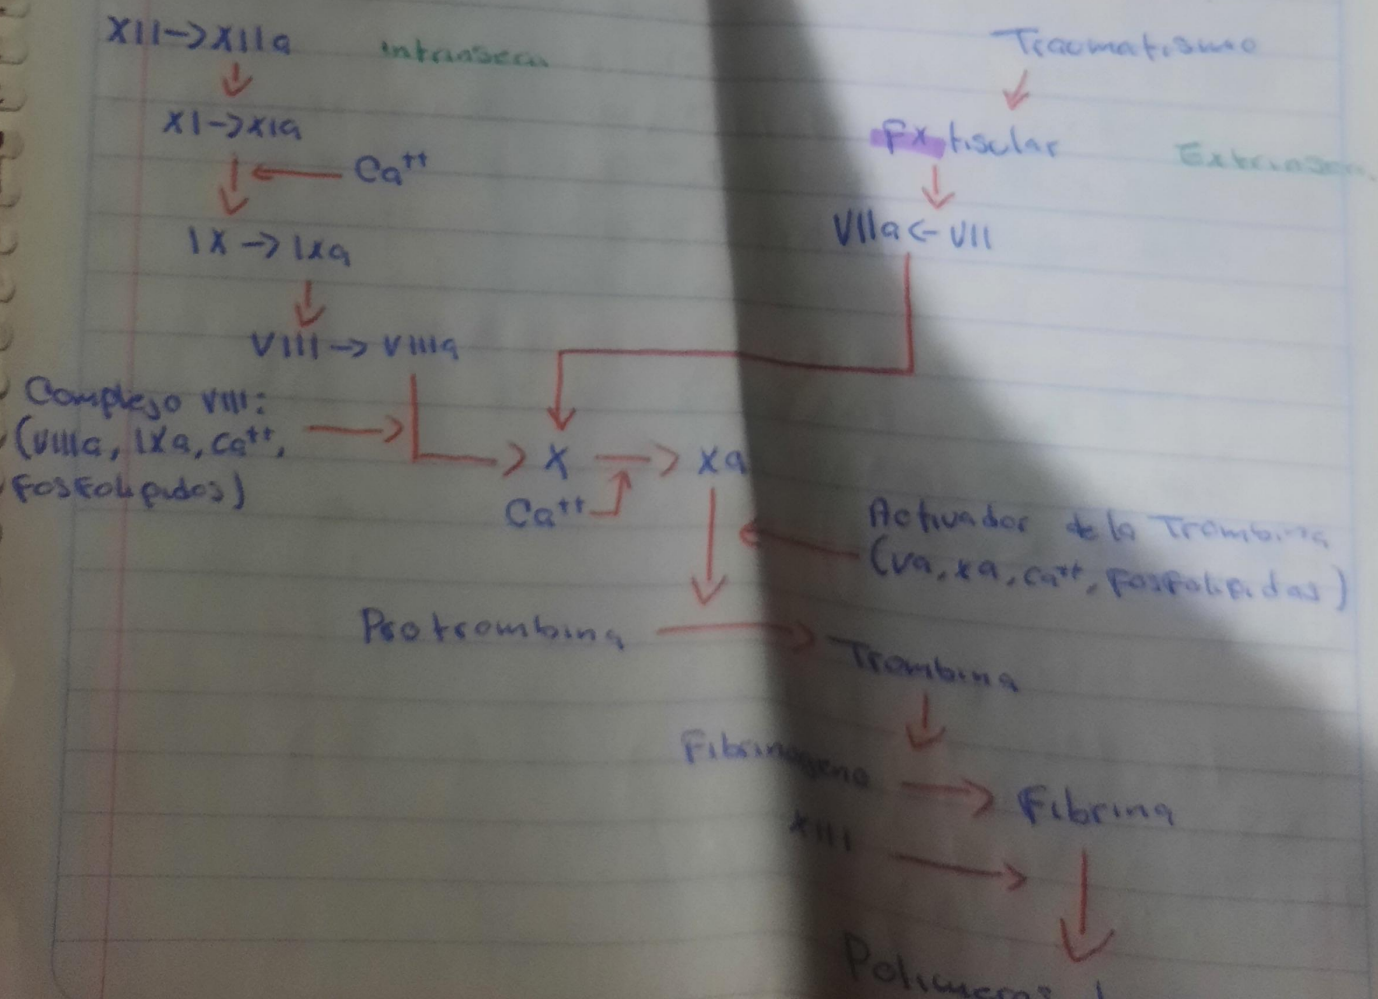 XII → XIIa
Intrinseca
XI → XIa
Ca++
IX → IXa
VIII → VIIIa
Complejo VIII:
(VIIIa, IXa, Ca++,
Fosfolipidos)
Traumatismo
Fx tisular
Extrinseca
VIIa ← VII
X → Xa
Ca++
Activador de la Trombina
(Va, Xa, Ca++, Fosfolipidos)
Protrombina → Trombina
Fibrinogeno → Fibrina
XIII